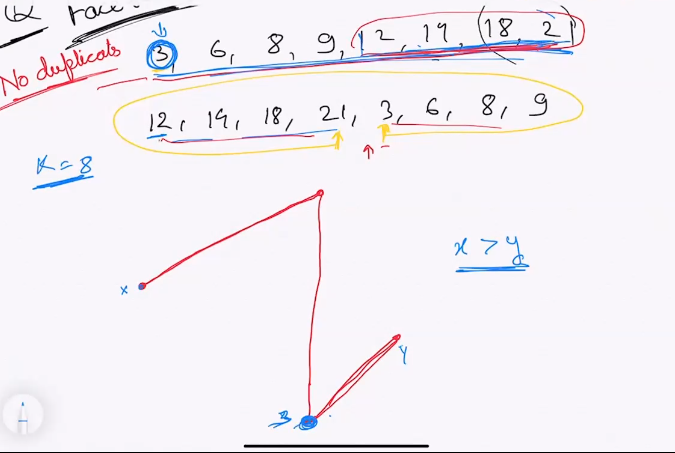 No duplicates
3, 6, 8, 9, 12, 19, (18, 21)
12, 19, 18, 21, 3, 6, 8, 9
K = 8
x > y
x
y
3